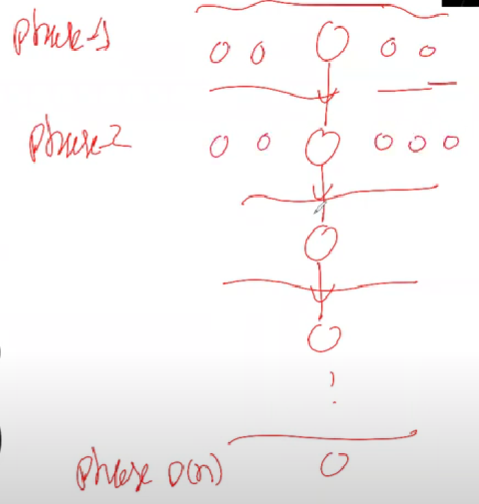 phase-1
phase-2
phase O(n)